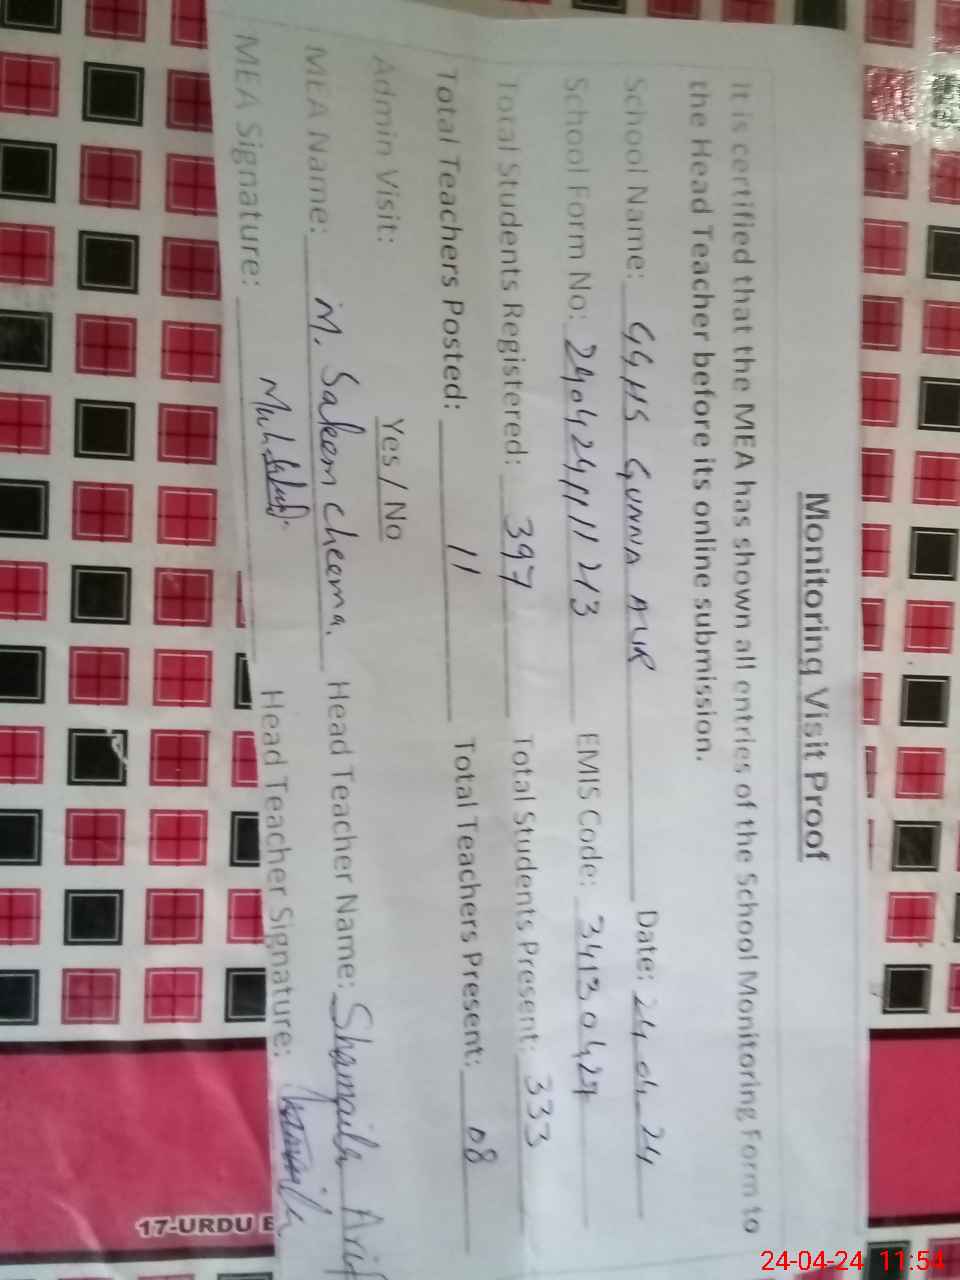 Monitoring Visit Proof
It is certified that the MEA has shown all entries of the School Monitoring Form to
the Head Teacher before its online submission.
School Name: GGHS GUNNA AUR Date: 24-04-24
School Form No: 2404241111213 EMIS Code: 34130427
Total Students Registered: 397 Total Students Present: 333
Total Teachers Posted: 11 Total Teachers Present: 08
Admin Visit: Yes / No
MEA Name: M. Saleem Cheema. Head Teacher Name: Shamaila Arif
MEA Signature: Head Teacher Signature:
17-URDU
24-04-24 11:54